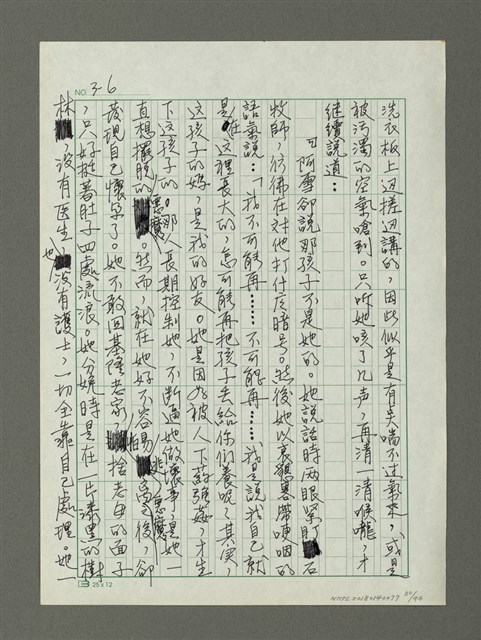 NO. 3-6
洗衣板上邊搓邊講的，因此似乎是有點喘不过氣來，或是
被污濁的空氣嗆到。只听她咳了几声，再清一清喉嚨，才
继續說道：
「阿雪卻說那孩子不是她的。她說話時两眼緊盯石
牧師，彷彿在对他打什么暗号。然後她以哀懇畧帶哽咽的
語氣說：「我不可能再……不可能再……我是說我自己就
是在這裡長大的，怎可能再把孩子丢給你们養呢？其实，
這孩子的媽，是我的好友。她是因为被人下药强姦，才生
下這孩子的。那人長期控制她，不断逼她做壞事，是她一
直想擺脱的惡魔。然而，就在她好不容易逃离惡魔後，卻
发現自己懷孕了。她不敢回基隆老家，怕捨老母的面子
，只好挺着肚子四處流浪。她分娩時是在一片漆黑的樹
林，没有医生，也没有護士，一切全靠自己處理。她一
25×12
NMTL20180140077 80/96